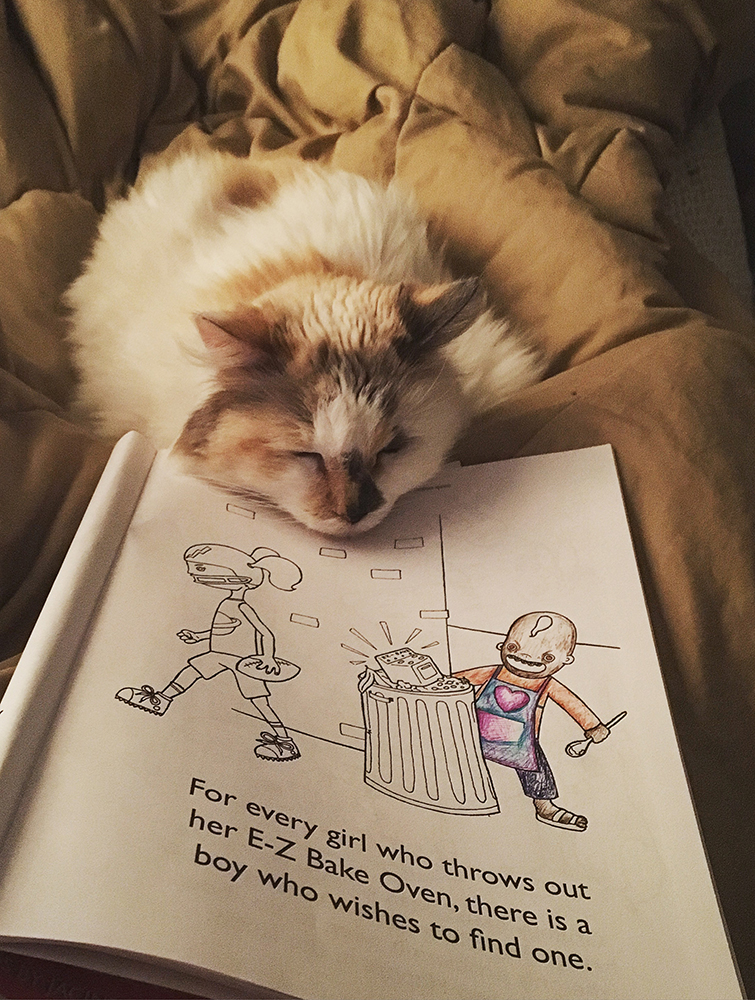 For every girl who throws out
her E-Z Bake Oven, there is a
boy who wishes to find one.